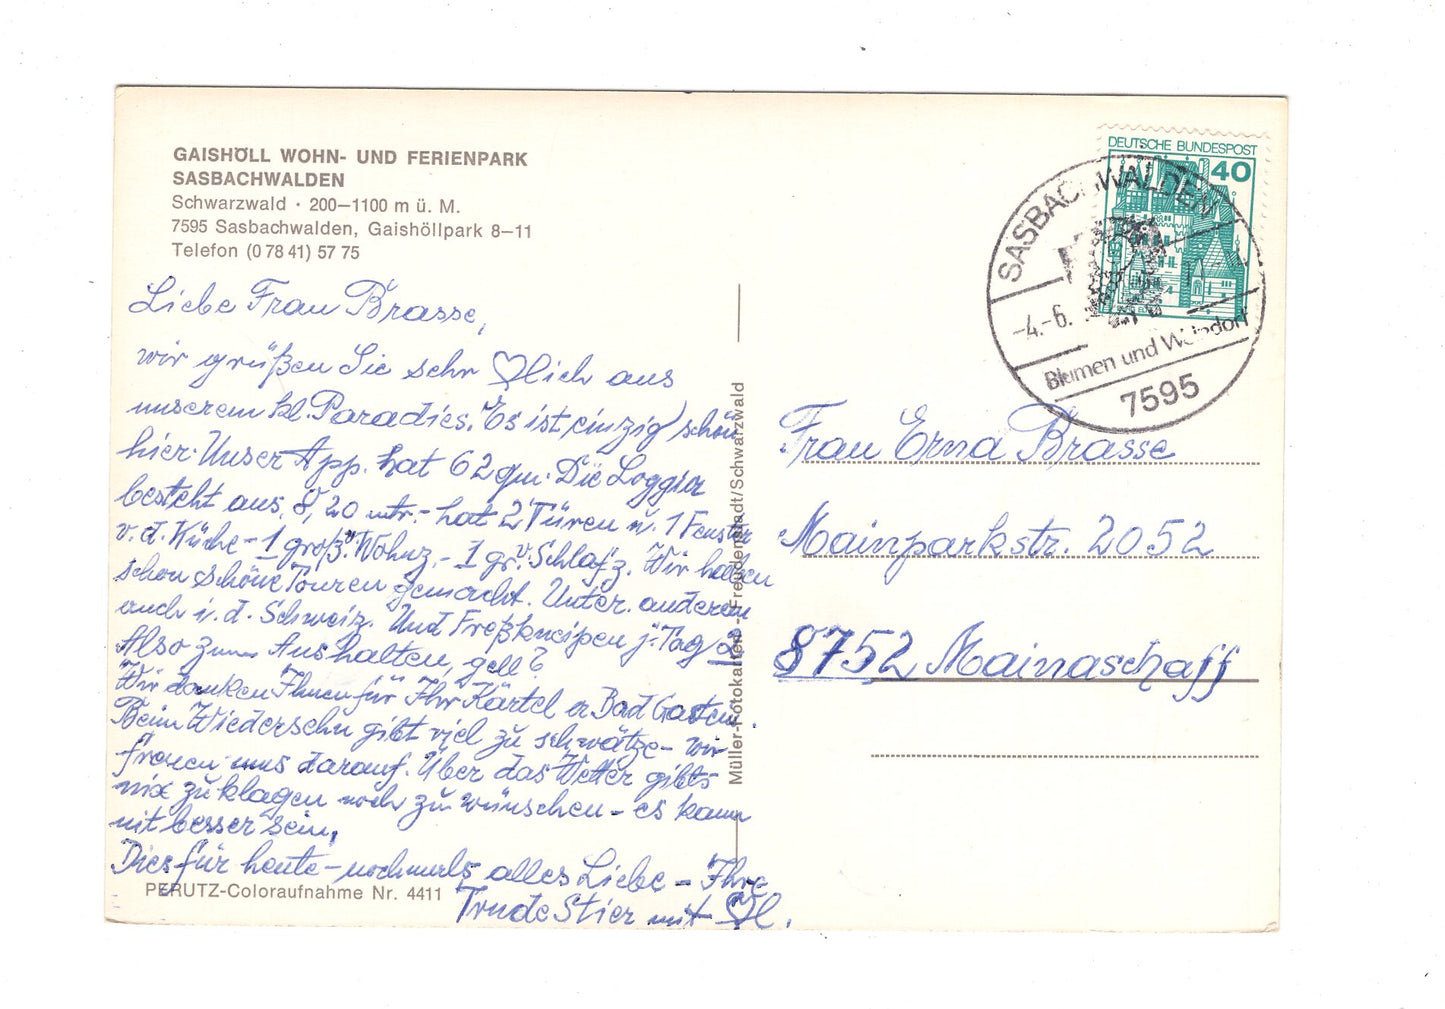 GAISHÖLL WOHN- UND FERIENPARK
SASBACHWALDEN
Schwarzwald · 200–1100 m ü. M.
7595 Sasbachwalden, Gaishöllpark 8–11
Telefon (0 78 41) 57 75
Liebe Frau Brasse,
wir grüßen Sie sehr ♡lich aus
unserem kl. Paradies. Es ist einzig schön
hier. Unser App. hat 62 qm. Die Loggia
besteht aus 8,20 mtr. - hat 2 Türen u. 1 Fenster
v. d. Küche - 1 groß. Wohnz. - 1 gr. Schlafz. Wir haben
schon schöne Touren gemacht. Unter anderem
auch i. d. Schweiz. Und Freßkneipen j. Tag 2
Also zum Aushalten, gell?
Wir danken Ihnen für Ihr Kärtel Bad Gastein.
Beim Wiedersehn gibt viel zu schwätze - wir
freuen uns darauf. Über das Wetter gibts
nix zu klagen noch zu wünschen - es kann
nit besser sein.
Dies für heute - nochmals alles Liebe - Ihre
Trude Stier mit
PERUTZ-Coloraufnahme Nr. 4411
Müller-Fotokarten - Freudenstadt/Schwarzwald
DEUTSCHE BUNDESPOST
40
SASBACHWALDEN
-4.-6.
Blumen und Weindorf
7595
Frau Erna Brasse
Mainparkstr. 2052
8752 Mainaschaff